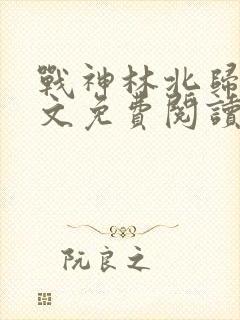 戰神林北歸
文免費閱讀
阮良之